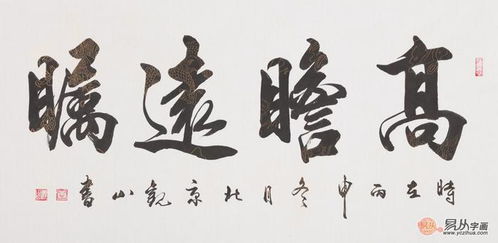 高瞻遠瞩
時在丙申冬月北京觀山書
易从字画
www.yczihua.com